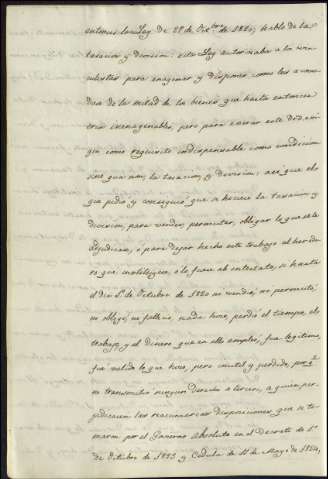 entonces la Ley de 27 de Octbre de 1820; habló de la
tasacion y division: esta Ley autorizaba a los vin-
culistas para enagenar y disponer como les acomo-
dara de la mitad de los bienes que hasta entonces
eran inenagenables, pero para entrar este dro. exi-
gia como requisito indispensable, como condicion
sine qua non, la tasacion, y division; asi que el
que pidió y consiguió que se hiciese la tasacion y
division, para vender, permutar, obligar lo que se le
adjudicara, o para dejar hecho este trabajo al herede-
ro que instituyese, o lo fuese ab intestato, si hasta
el dia 1º de Octubre de 1820 no vendió, no permutó,
no obligó, no falleció, nada hizo, perdió el tiempo, el
trabajo, y el dinero que en ello empleó, fue legitimo,
fue valido lo que hizo, pero inutil y perdido, porqe
no transmitió ningun derecho a tercero, a quien per-
judicasen las reaccionarias disposiciones que se to-
maron por el Gobierno absoluto en el Decreto de 1º
de Octubre de 1823 y Cedula de 11 de Marzo de 1824,